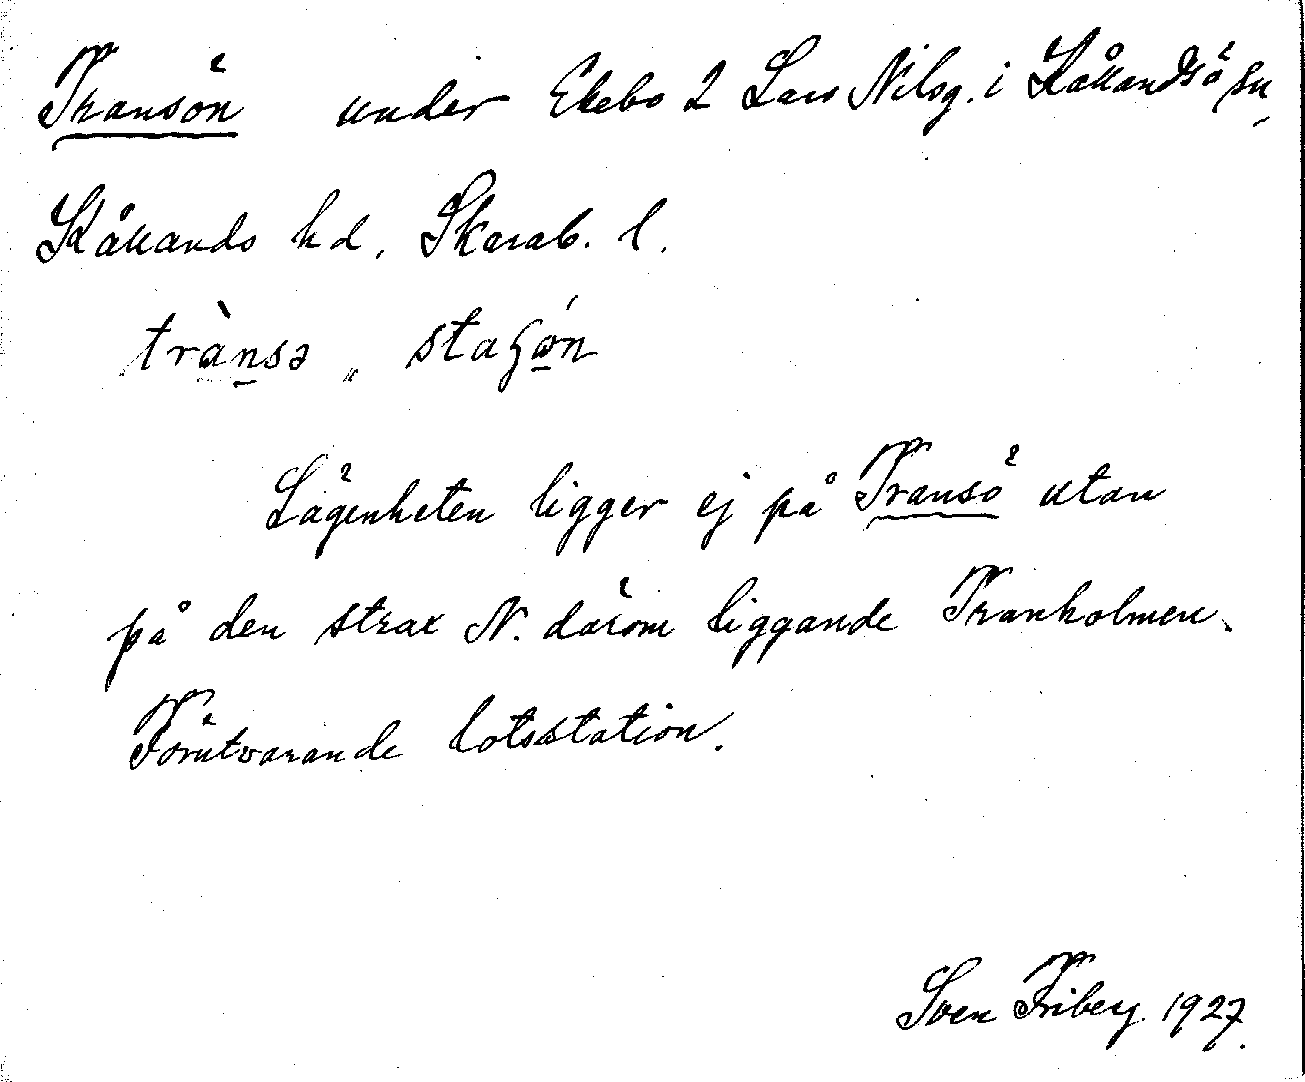 Transön under Ekebo 2 Lars Nilsg. i Kållandsö sn,
Kållands hd, Skarab. l.
trànsə „ staʃón
Lägenheten ligger ej på Transö utan
på den strax N. därom liggande Tranholmen.
Förutvarande lotsstation.
Sven Friberg 1927.